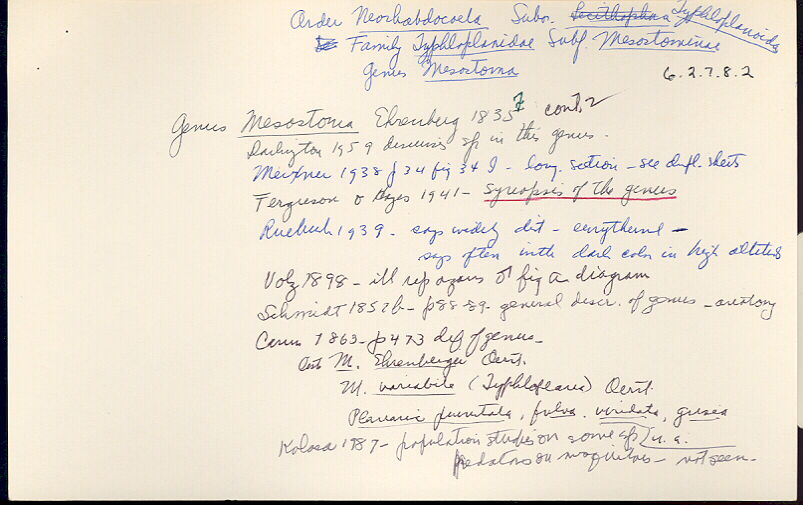 Order Neorhabdocoela Subo. Lecithophora Typhloplanoida
Family Typhloplanidae Subf. Mesostominae
Genus Mesostoma
6.2.7.8.2
Genus Mesostoma Ehrenberg 1835 7 cont. 2
Darlington 1959 discusses sp in this genus.
Meixner 1938 p 34 fig 34 I - long. section - see dupl. sheets
Ferguson & Hayes 1941 - Synopsis of the genus
Ruebush 1939 - says widely dist - eurytherml -
says often in the dark color in high altitudes
Volz 1898 - ill rep organs of fig a diagram
Schmidt 1852b - p88-89 - general descr. of genus - anatomy
Carus 1863 - p 473 def of genus -
M. Ehrenbergii Oerst.
M. variabile (Typhloplana) Oerst.
Planaria punctata, fulva, viridata, grisea
Kolasa 1987 - population studies on some sp
predators on mosquitoes - not seen.